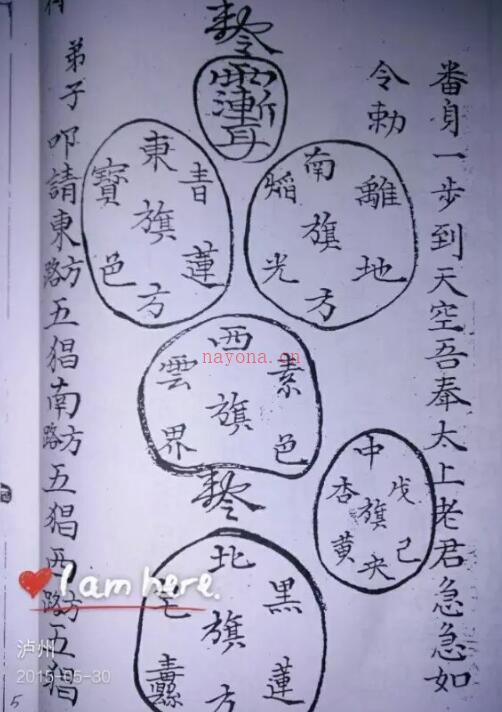 番身一步到天空吾奉太上老君急急如
令勅
勅令
離地
南旗方
焰光
青蓮
東旗方
寶色
素色
西旗
雲界
戊己
中旗央
杏黃
勅令
黑蓮
北旗方
弟子
叩請東方路五猖南方路五猖西方路五猖
nayona.cn
I am here.
泸州
2015-05-30
5